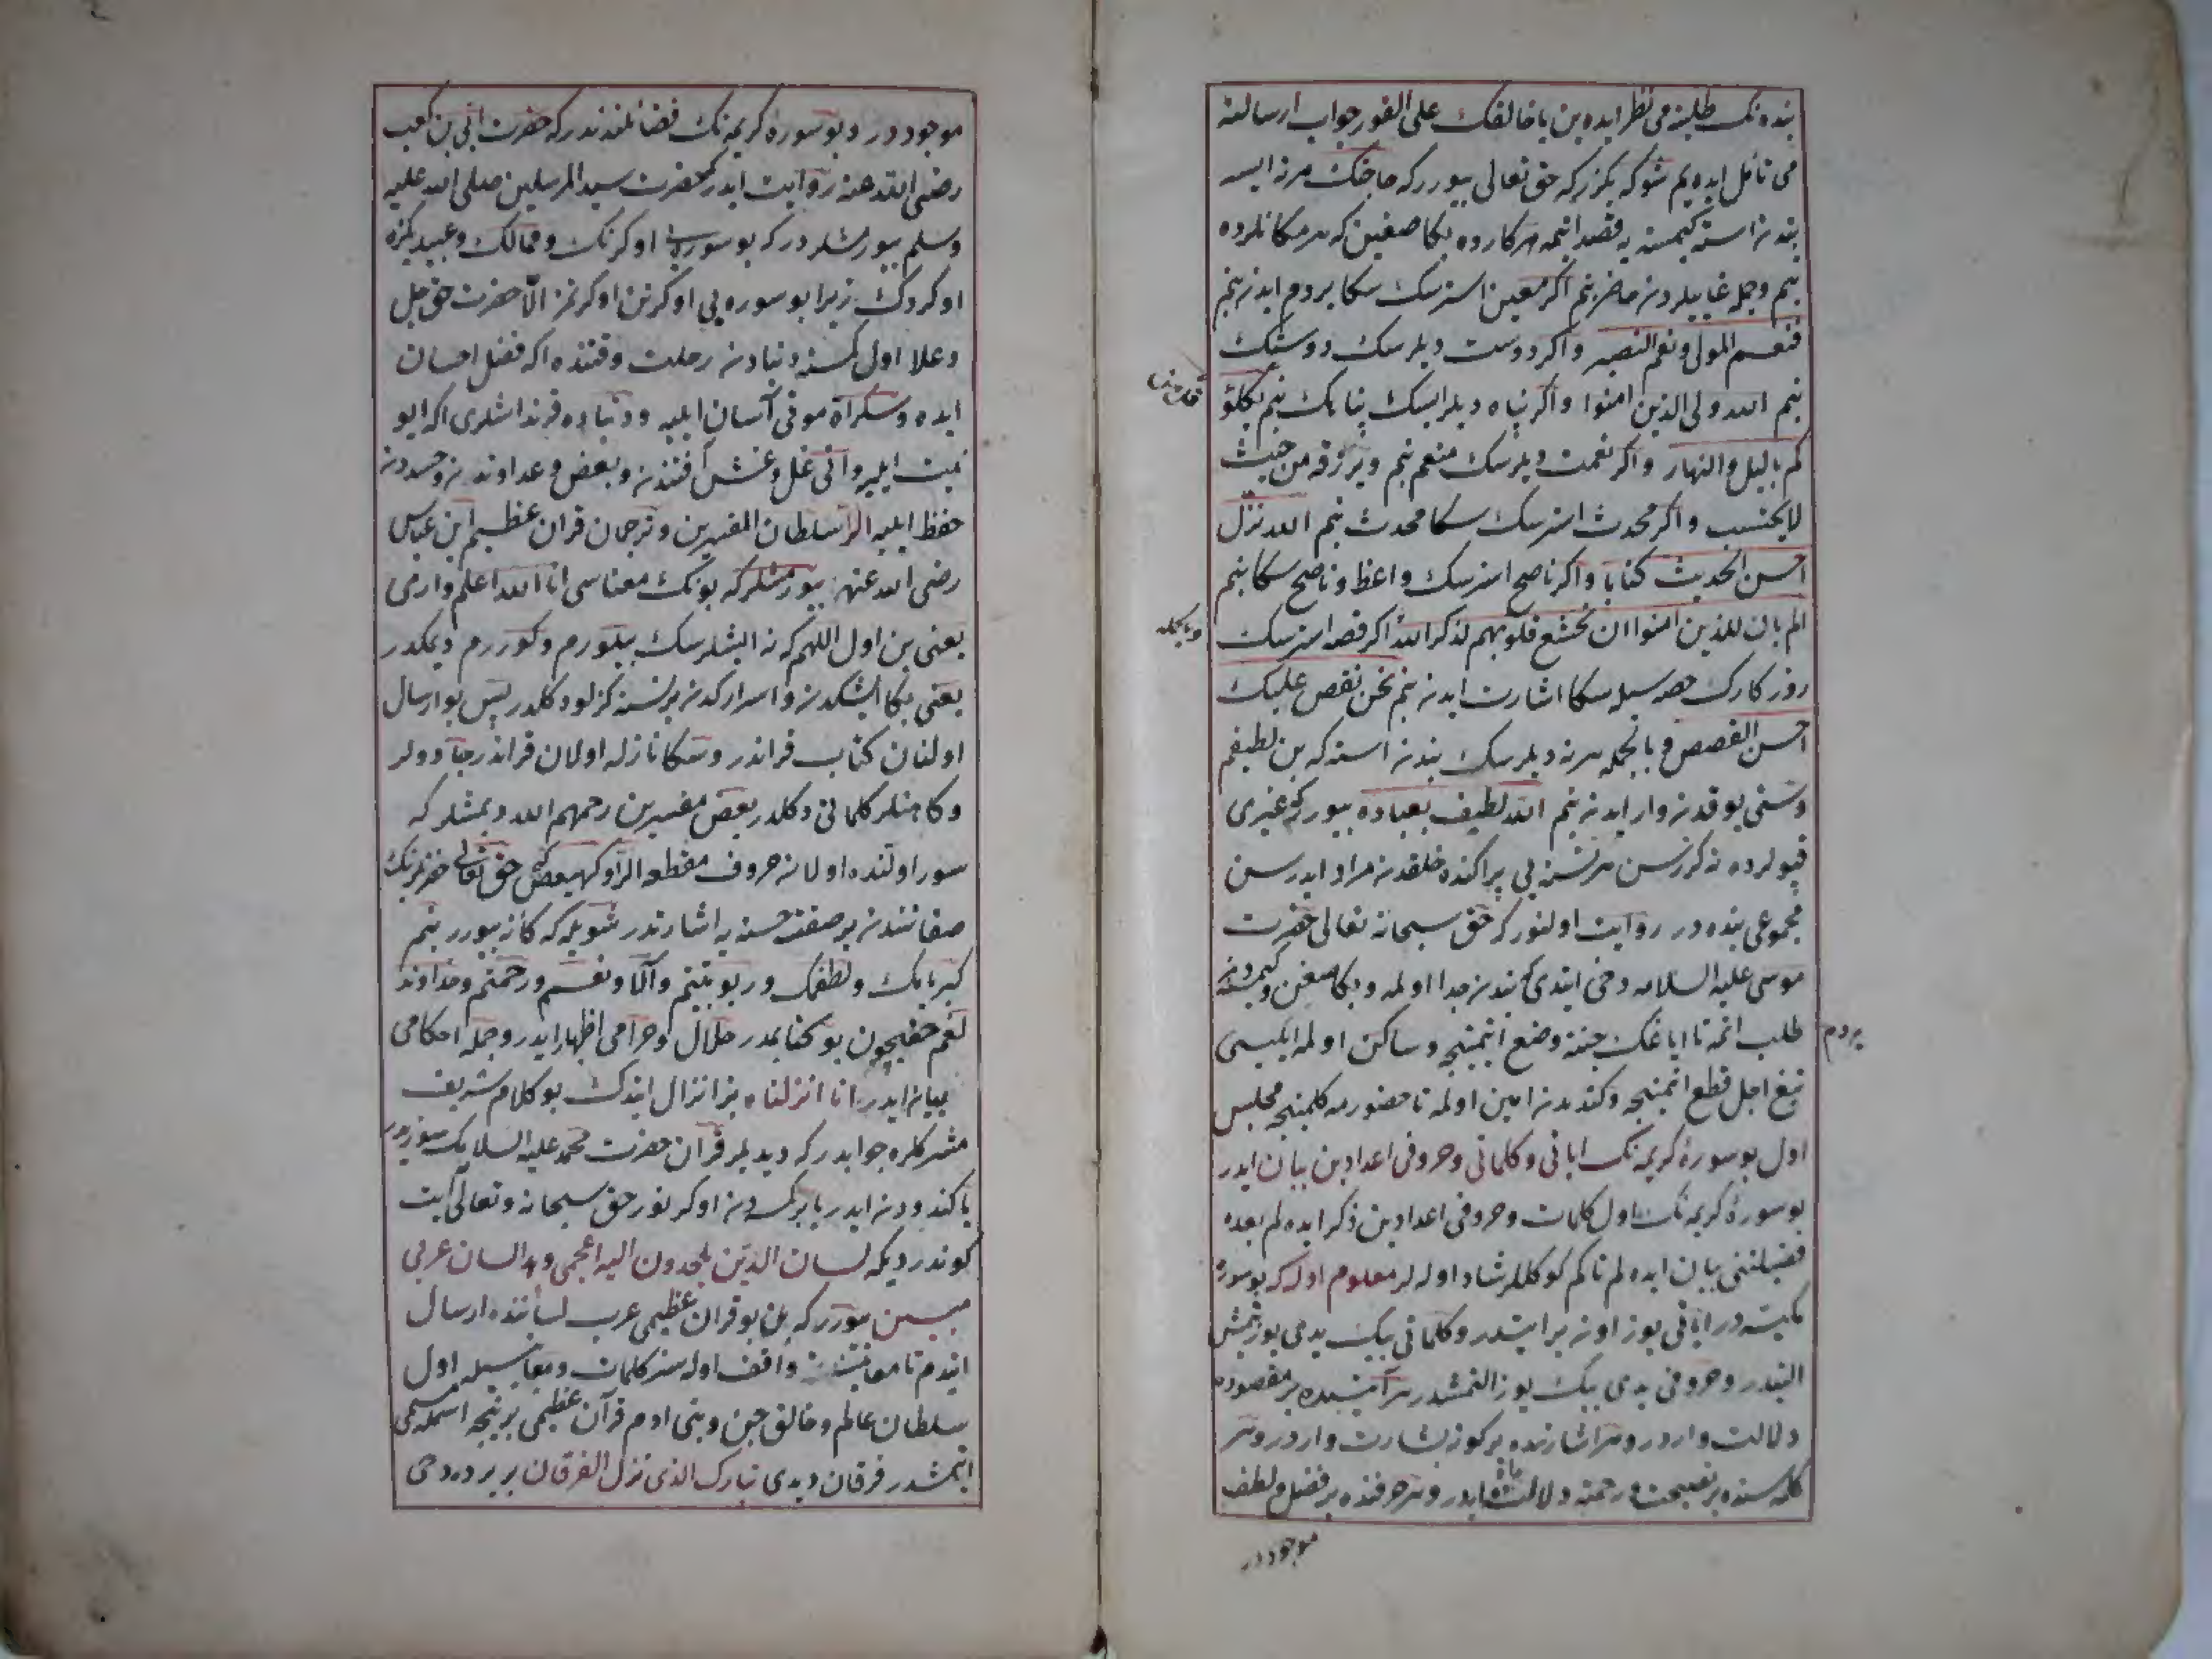 بنده نك طلبنه می نظر ایده ین یا خالفك علی الفور جواب ارسالنه
می تأمل ایده یم شوكه بكزركه حق تعالی بیوررکه حاجتك هر نه ایسه
بندن استه كیمسنه یه قصد ایتمه هر كارده بكا صغین که هر مكانلرده
بنم و جمله غایبلردن حاضر بنم اگر معین استرسك سكا یردم ایدن بنم
فنعم المولی ونعم النصیر واگر دوست دیلرسك دوستك
بنم الله ولی الذین امنوا واگر پناه دیلرایسك پناهك بنم یكلؤ
كم باللیل والنهار واگر نعمت دیلرسك منعم بنم ویرزقه من حیث
لا یحتسب واگر محدث استرسك سكا محدث بنم الله نزل
احسن الحدیث كتابا واگر ناصح استرسك واعظ وناصح سكا بنم
الم یان للذین امنوا ان تخشع قلوبهم لذكر الله اگر قصه استرسك
روزكارك حصه سیله سكا اشارت ایدن بنم نحن نقص علیك
احسن القصص و بالجمله هر نه دیلرسك بندن استه كه بن لطیفم
وسنی یوقدن وار ایدن بنم الله لطیف بعباده بیورركه غیری
قپولرده نه گزرسن هر نسنه یی پراكنده خلقدن مراد ایدرسن
مجموعی بنده در روایت اولنور كه حق سبحانه تعالی حضرت
موسی علیه السلامه وحی ایتدی كه بندن جدا اولمه وبكا صغین وكیمسه دن
یردم طلب ایتمه تا ایاغك جنته وضع ایتمینجه وساكن اولمه ابلیسی
تیغ اجل قطع ایتمینجه وكندیدن امین اولمه تا حضورمه كلمینجه مجلس
اول بو سورۀ كریمه نك ایاتی وكلماتی وحروفی اعدادین بیان ایدر
بو سورۀ كریمه نك اول كلمات وحروفی اعدادین ذكر ایده لم بعده
فضیلتنی بیان ایده لم تا كم كوكللر شاد اوله لر معلوم اوله كه بو سوره
مكیه در ایاتی یوز اون بر ایتدر وكلماتی بیك یدی یوز یتمش
التیدر وحروفی یدی بیك یوز التمشدر هر آیتنده بر مقصوده
دلالت واردر وهر اشارتده بر كونه بشارت واردر وهر
كلمه سنده بر نصیحت ورحمته دلالت ایدر وهر حرفنده بر فضل ولطف
موجوددر
وبالجمله
موجوددر وبو سورۀ كریمه نك فضائلندندر كه حضرت ابی بن كعب
رضی الله عنه روایت ایدر كه حضرت سید المرسلین صلی الله علیه
وسلم بیورمشلردر كه بو سوره یی اوكرنك وممالك وعبیدیكزه
اوكردك زیرا بو سوره یی اوكرنن اوكرنمز الا حضرت حق جل
وعلا اول كسنه دنیادن رحلت وقتنده اكه فضل احسان
ایده وسكراة موتی آسان ایلیه ودنیاده قرنداشلری اكه ایو
نیت ایلیه وانی غل وغش آفتندن وبعض وعداوتدن وحسددن
حفظ ایلیه الر سلطان المفسرین وترجمان قران عظیم ابن عباس
رضی الله عنه بیورمشلر كه بونك معناسی انا الله اعلم واری
یعنی بن اول اللهم كه نه ایشلرسك بیلورم وكوررم دیمكدر
یعنی بكا ایشكدن واسراركدن برنسنه كزلو دكلدر پس بو ارسال
اولنان كتاب قراندر وسكا نازله اولان قراندر جادولر
وكاهنلر كلماتی دكلدر بعض مفسرین رحمهم الله دیمشلر كه
سور اولنده اولان حروف مقطعه الر وكهیعص حق تعالی حضرتنك
صفاتندن بر صفت حسنه یه اشارتدر شویله كه كانه بیورر بنم
كبریایك ولطفك وربوبیتیم وآلا ونعم ورحمتم وخداوند
لغم حقیچون بو كتابمدر حلال وحرامی اظهار ایدر وجمله احكامی
بیان ایدر انا انزلناه بز انزال ایتدك بو كلام شریف
مشركلره جوابدر كه دیدیلر قرآن حضرت محمد علیه السلامك سوزیدر
یا كندودن ایدر یا بركسه دن اوكرنور حق سبحانه وتعالی آیت
كوندردیكه لسان الذین یلحدون الیه اعجمی وهذا لسان عربی
مبین بیورركه بن بو قران عظیمی عرب لساننده ارسال
ایتدم تا معانیسنه واقف اوله سز كلمات ومعانیسیله اول
سلطان عالم وخالق جن وبنی ادم قرآن عظیمی برنیچه اسمله مسمی
ایتمشدر فرقان دیدی تبارك الذی نزل الفرقان بر برد وحی